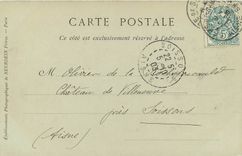 CARTE POSTALE
Ce côté est exclusivement réservé à l'adresse
M. Olivier de la
Château de Villeneuve
près Soissons
(Aisne)
SOISSONS
AISNE
Etablissements Photographiques de NEURDEIN Frères. — Paris